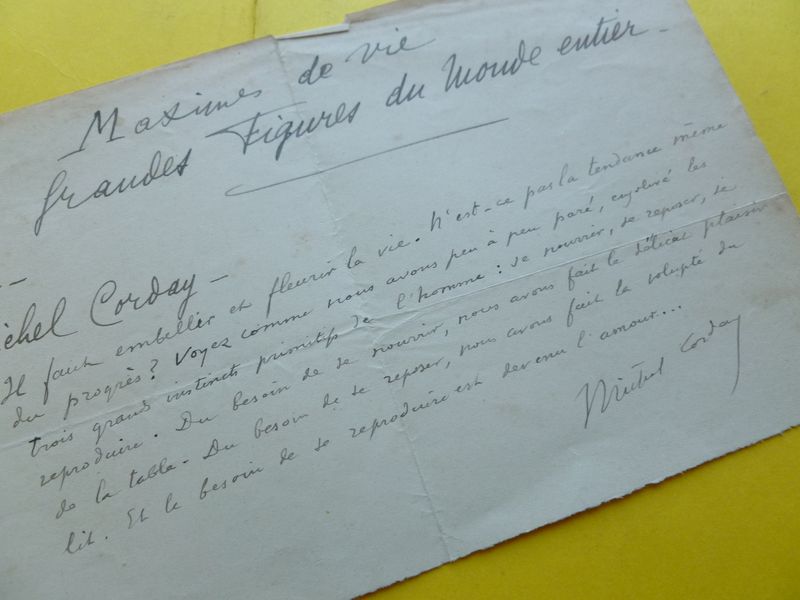 Maximes de vie
Grandes Figures du Monde entier -
chel Corday -
Il faut embellir et fleurir la vie. N'est-ce pas la tendance même
du progrès ? Voyez comme nous avons peu à peu paré, enjolivé les
trois grands instincts primitifs de l'homme : se nourrir, se reposer, se
reproduire. Du besoin de se nourrir, nous avons fait le délicat plaisir
de la table - Du besoin de se reposer, nous avons fait la volupté du
lit. Et le besoin de se reproduire est devenu l'amour...
Michel Corday